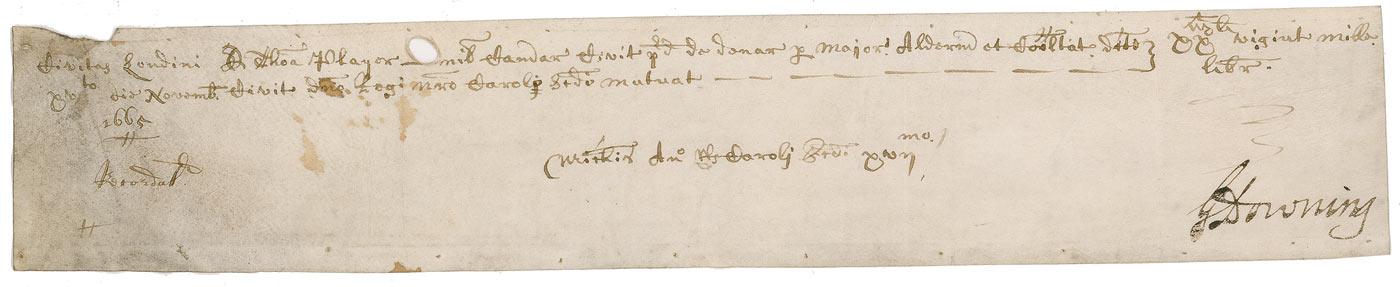 Civitas Londini D Thoa Player mil Camerar Civit pd de denar p Major Alderm et Coitat dcte XX vigint mille libr
xvto die Novemb. Civit dno Regi nro Caroli Scdo mutuat
1665
Recordat
Michis Ano Rs Caroli Scdi xvii mo
GDowning